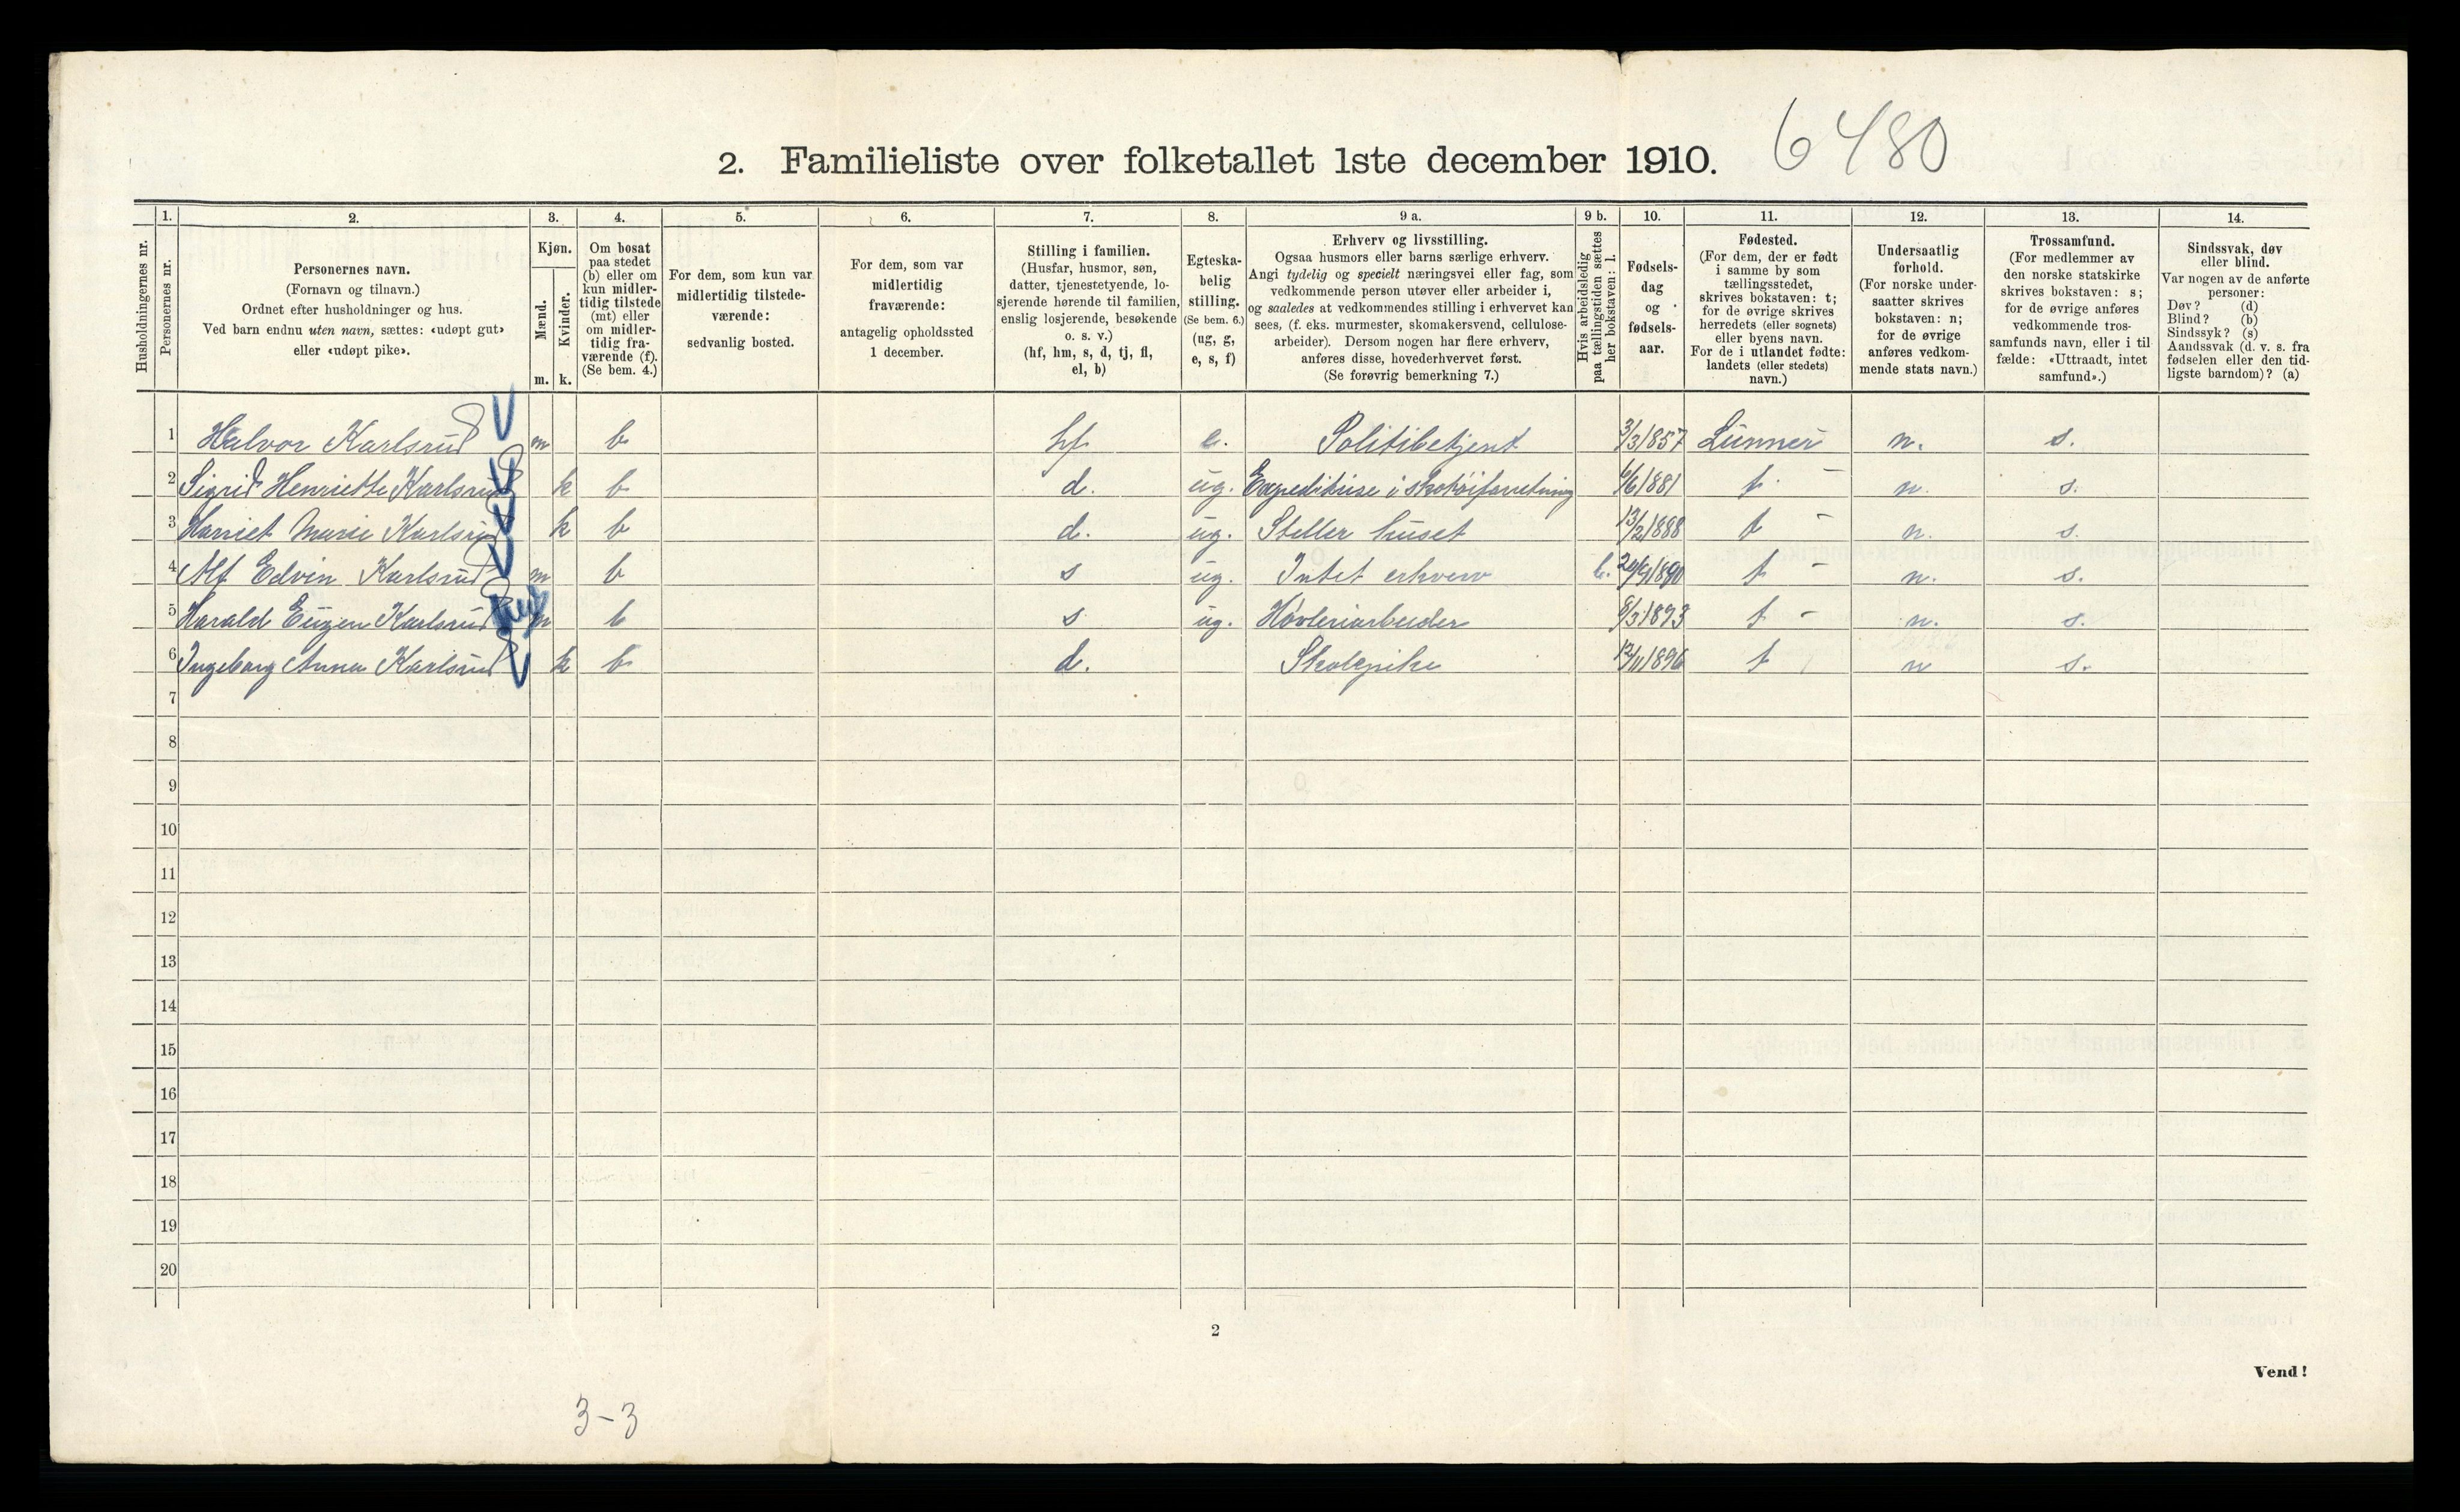 2. Familieliste over folketallet 1ste december 1910. 6480
Husholdningernes nr.
1. Personernes nr.
2. Personernes navn.
(Fornavn og tilnavn.)
Ordnet efter husholdninger og hus.
Ved barn endnu uten navn, sættes: «udøpt gut»
eller «udøpt pike».
3. Kjøn.
Mænd. m.
Kvinder. k.
4. Om bosat
paa stedet
(b) eller om
kun midler-
tidig tilstede
(mt) eller
om midler-
tidig fra-
værende (f).
(Se bem. 4.)
5. For dem, som kun var
midlertidig tilstede-
værende:
sedvanlig bosted.
6. For dem, som var
midlertidig
fraværende:
antagelig opholdssted
1 december.
7. Stilling i familien.
(Husfar, husmor, søn,
datter, tjenestetyende, lo-
sjerende hørende til familien,
enslig losjerende, besøkende
o. s. v.)
(hf, hm, s, d, tj, fl,
el, b)
8. Egteska-
belig
stilling.
(Se bem. 6.)
(ug, g,
e, s, f)
9 a. Erhverv og livsstilling.
Ogsaa husmors eller barns særlige erhverv.
Angi tydelig og specielt næringsvei eller fag, som
vedkommende person utøver eller arbeider i,
og saaledes at vedkommendes stilling i erhvervet kan
sees, (f. eks. murmester, skomakersvend, cellulose-
arbeider). Dersom nogen har flere erhverv,
anføres disse, hovederhvervet først.
(Se forøvrig bemerkning 7.)
9 b. Hvis arbeidsledig
paa tællingstiden sættes
her bokstaven: l.
10. Fødsels-
dag
og
fødsels-
aar.
11. Fødested.
(For dem, der er født
i samme by som
tællingsstedet,
skrives bokstaven: t;
for de øvrige skrives
herredets (eller sognets)
eller byens navn.
For de i utlandet fødte:
landets (eller stedets)
navn.)
12. Undersaatlig
forhold.
(For norske under-
saatter skrives
bokstaven: n;
for de øvrige
anføres vedkom-
mende stats navn.)
13. Trossamfund.
(For medlemmer av
den norske statskirke
skrives bokstaven: s;
for de øvrige anføres
vedkommende tros-
samfunds navn, eller i til-
fælde: «Uttraadt, intet
samfund».)
14. Sindssvak, døv
eller blind.
Var nogen av de anførte
personer:
Døv? (d)
Blind? (b)
Sindssyk? (s)
Aandssvak (d. v. s. fra
fødselen eller den tid-
ligste barndom)? (a)
1 Halvor Karlsrud m b hf e. Politibetjent 3/3 1857 Lunner n. s.
2 Sigrid Henriette Karlsrud k b d. ug. Expeditrise i skotøiforretning 6/6 1881 t. n. s.
3 Harriet Marie Karlsrud k b d. ug. Steller huset 13/2 1888 t n. s.
4 Alf Edvin Karlsrud m b s ug. Intet erhverv l. 1890 t n. s.
5 Harald Eugen Karlsrud m b s ug. Høvleriarbeider 8/3 1893 t n. s.
6 Ingeborg Anna Karlsrud k b d. Skolepike 12/11 1896 t n s.
7
8
9
10
11
12
13
14
15
16
17
18
19
20
2
Vend!
3-3